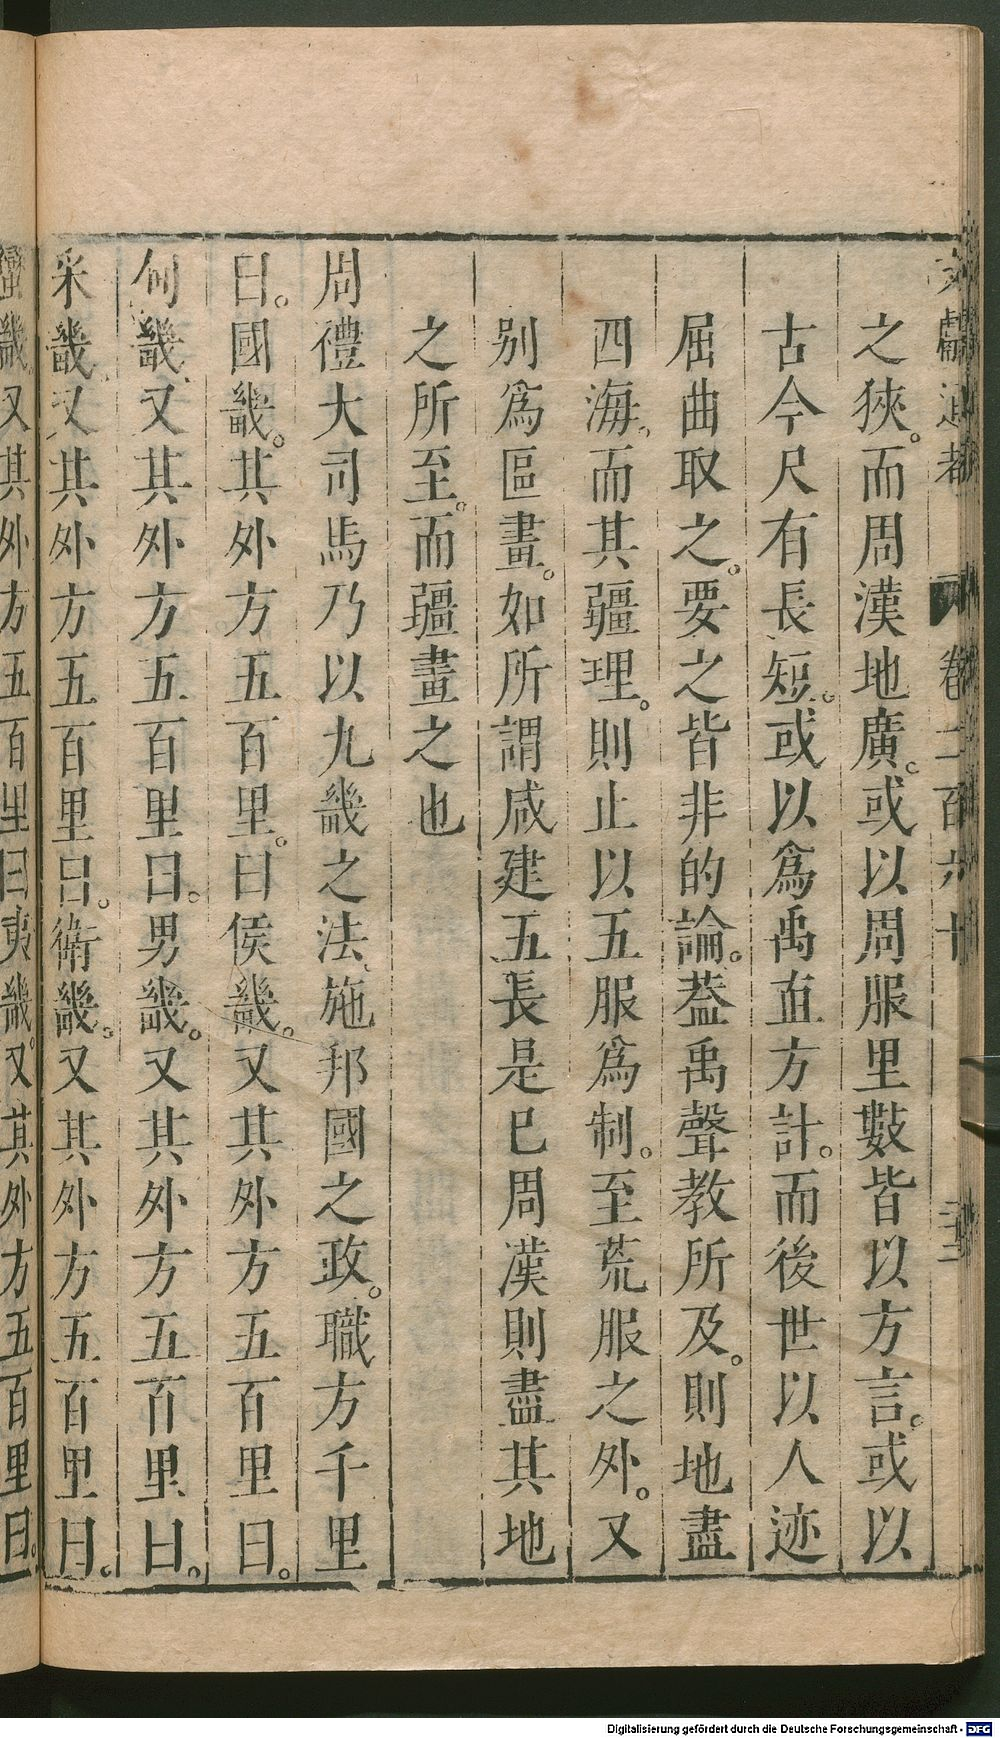 文獻通考 卷二百六十
之狹。而周漢地廣。或以周服里數皆以方言。或以
古今尺有長短。或以爲禹直方計。而後世以人迹
屈曲取之。要之皆非的論。葢禹聲教所及。則地盡
四海。而其疆理。則止以五服爲制。至荒服之外。又
别爲區畫。如所謂咸建五長是已周漢則盡其地
之所至。而疆畫之也
周禮大司馬乃以九畿之法、施邦國之政。職方千里
曰。國畿。其外方五百里。曰侯畿。又其外方五百里曰。
甸畿又其外方五百里曰。男畿。又其外方五百里曰。
采畿。又其外方五百里曰。衛畿。又其外方五百里曰。
蠻畿。又其外方五百里曰夷畿。又其外方五百里曰。
Digitalisierung gefördert durch die Deutsche Forschungsgemeinschaft - DFG